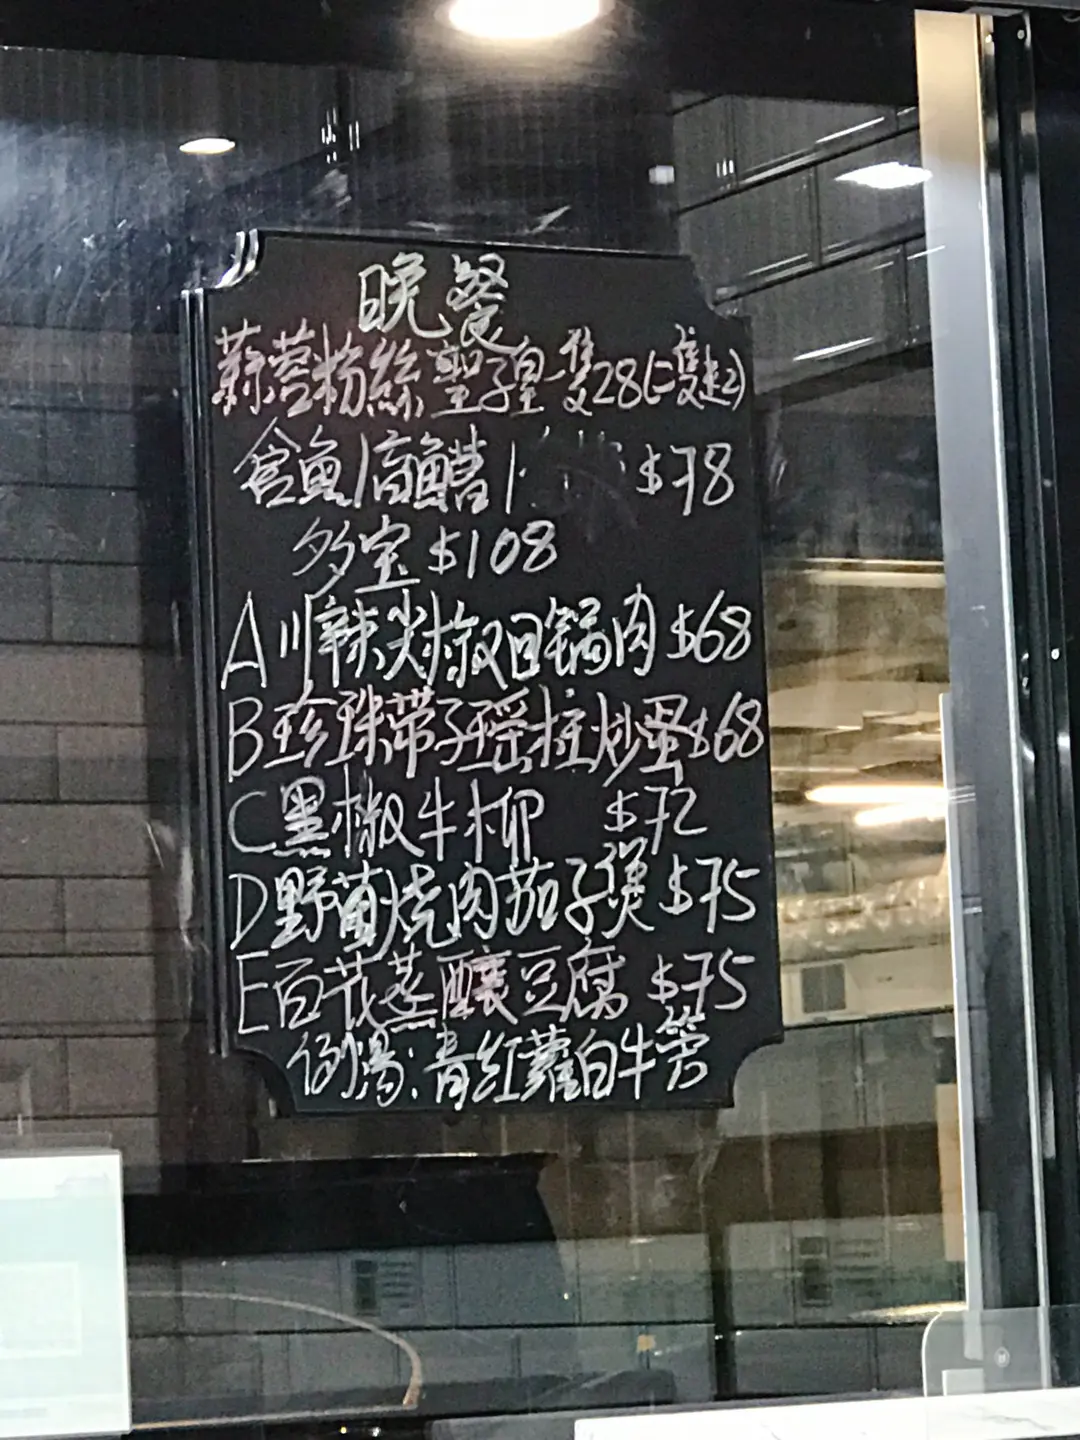 晚餐
蒜蓉粉絲聖子皇一隻28(二隻起)
倉魚/倩鱲/ $78
多宝$108
A川辣尖椒回鍋肉$68
B珍珠带子瑶柱炒蛋$68
C黑椒牛柳 $72
D野菌燒肉茄子煲$75
E百花蒸釀豆腐 $75
例湯:青紅蘿白牛𦟌